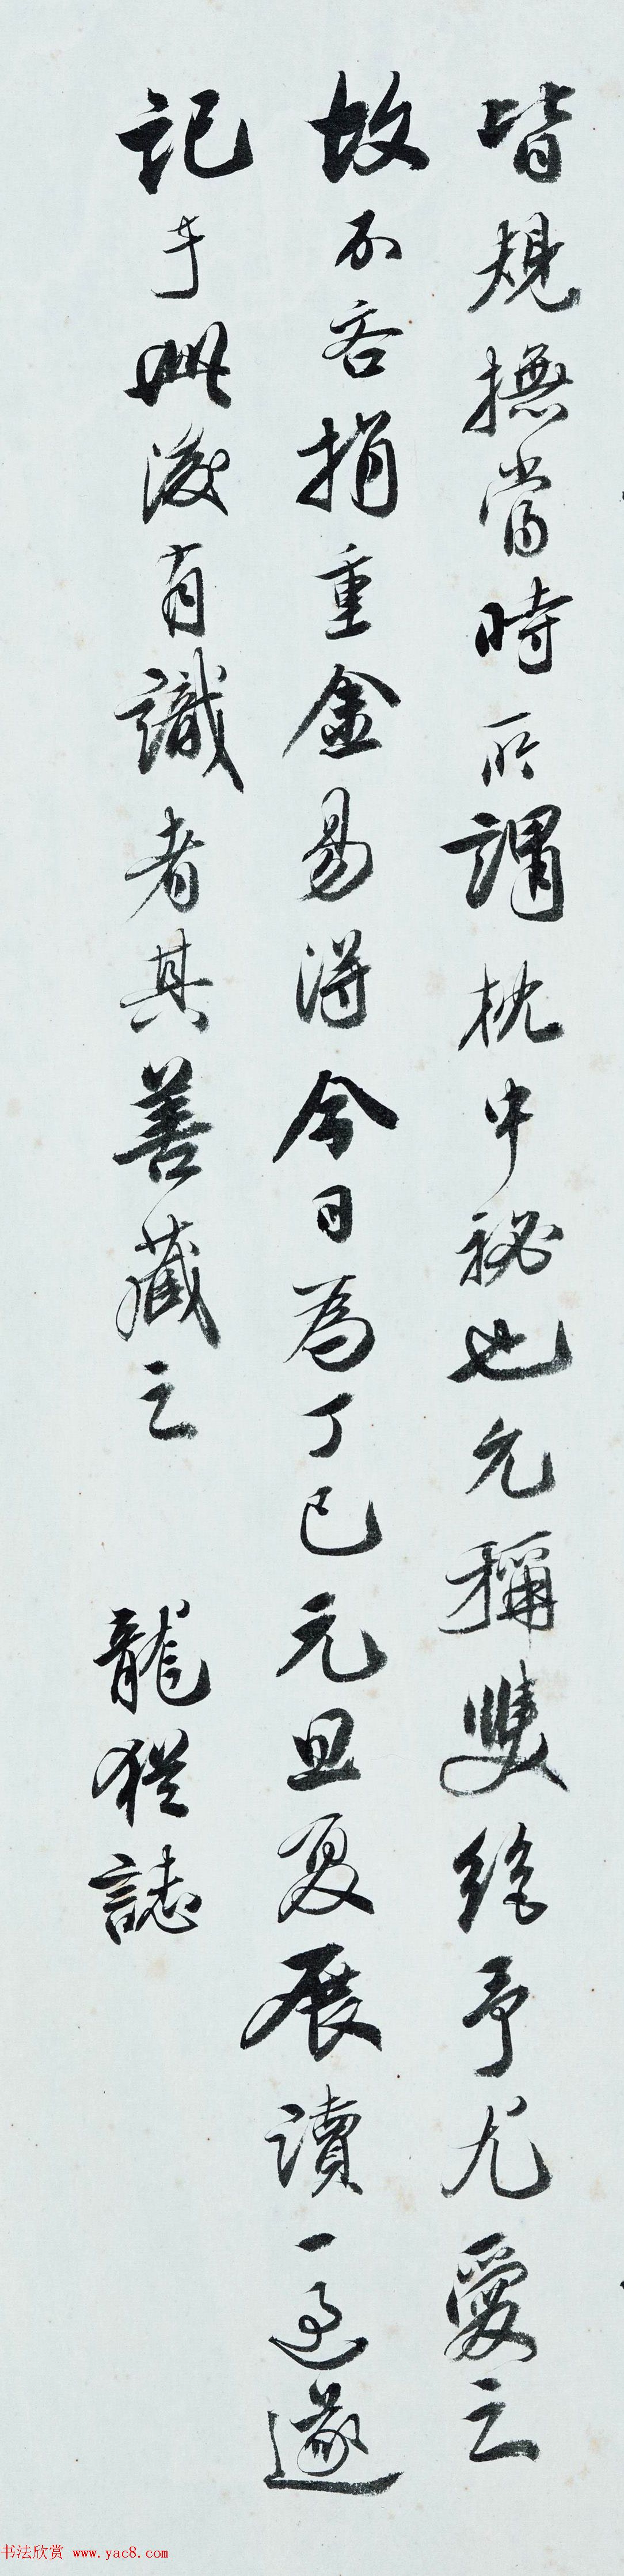 皆規撫當時所謂枕中秘也允稱雙絶予尤愛之
故不吝捐重金易得今日為丁巳元旦夏展讀一過遂
記于此後有識者其善藏之 龍猶誌
书法欣赏 www.yac8.com